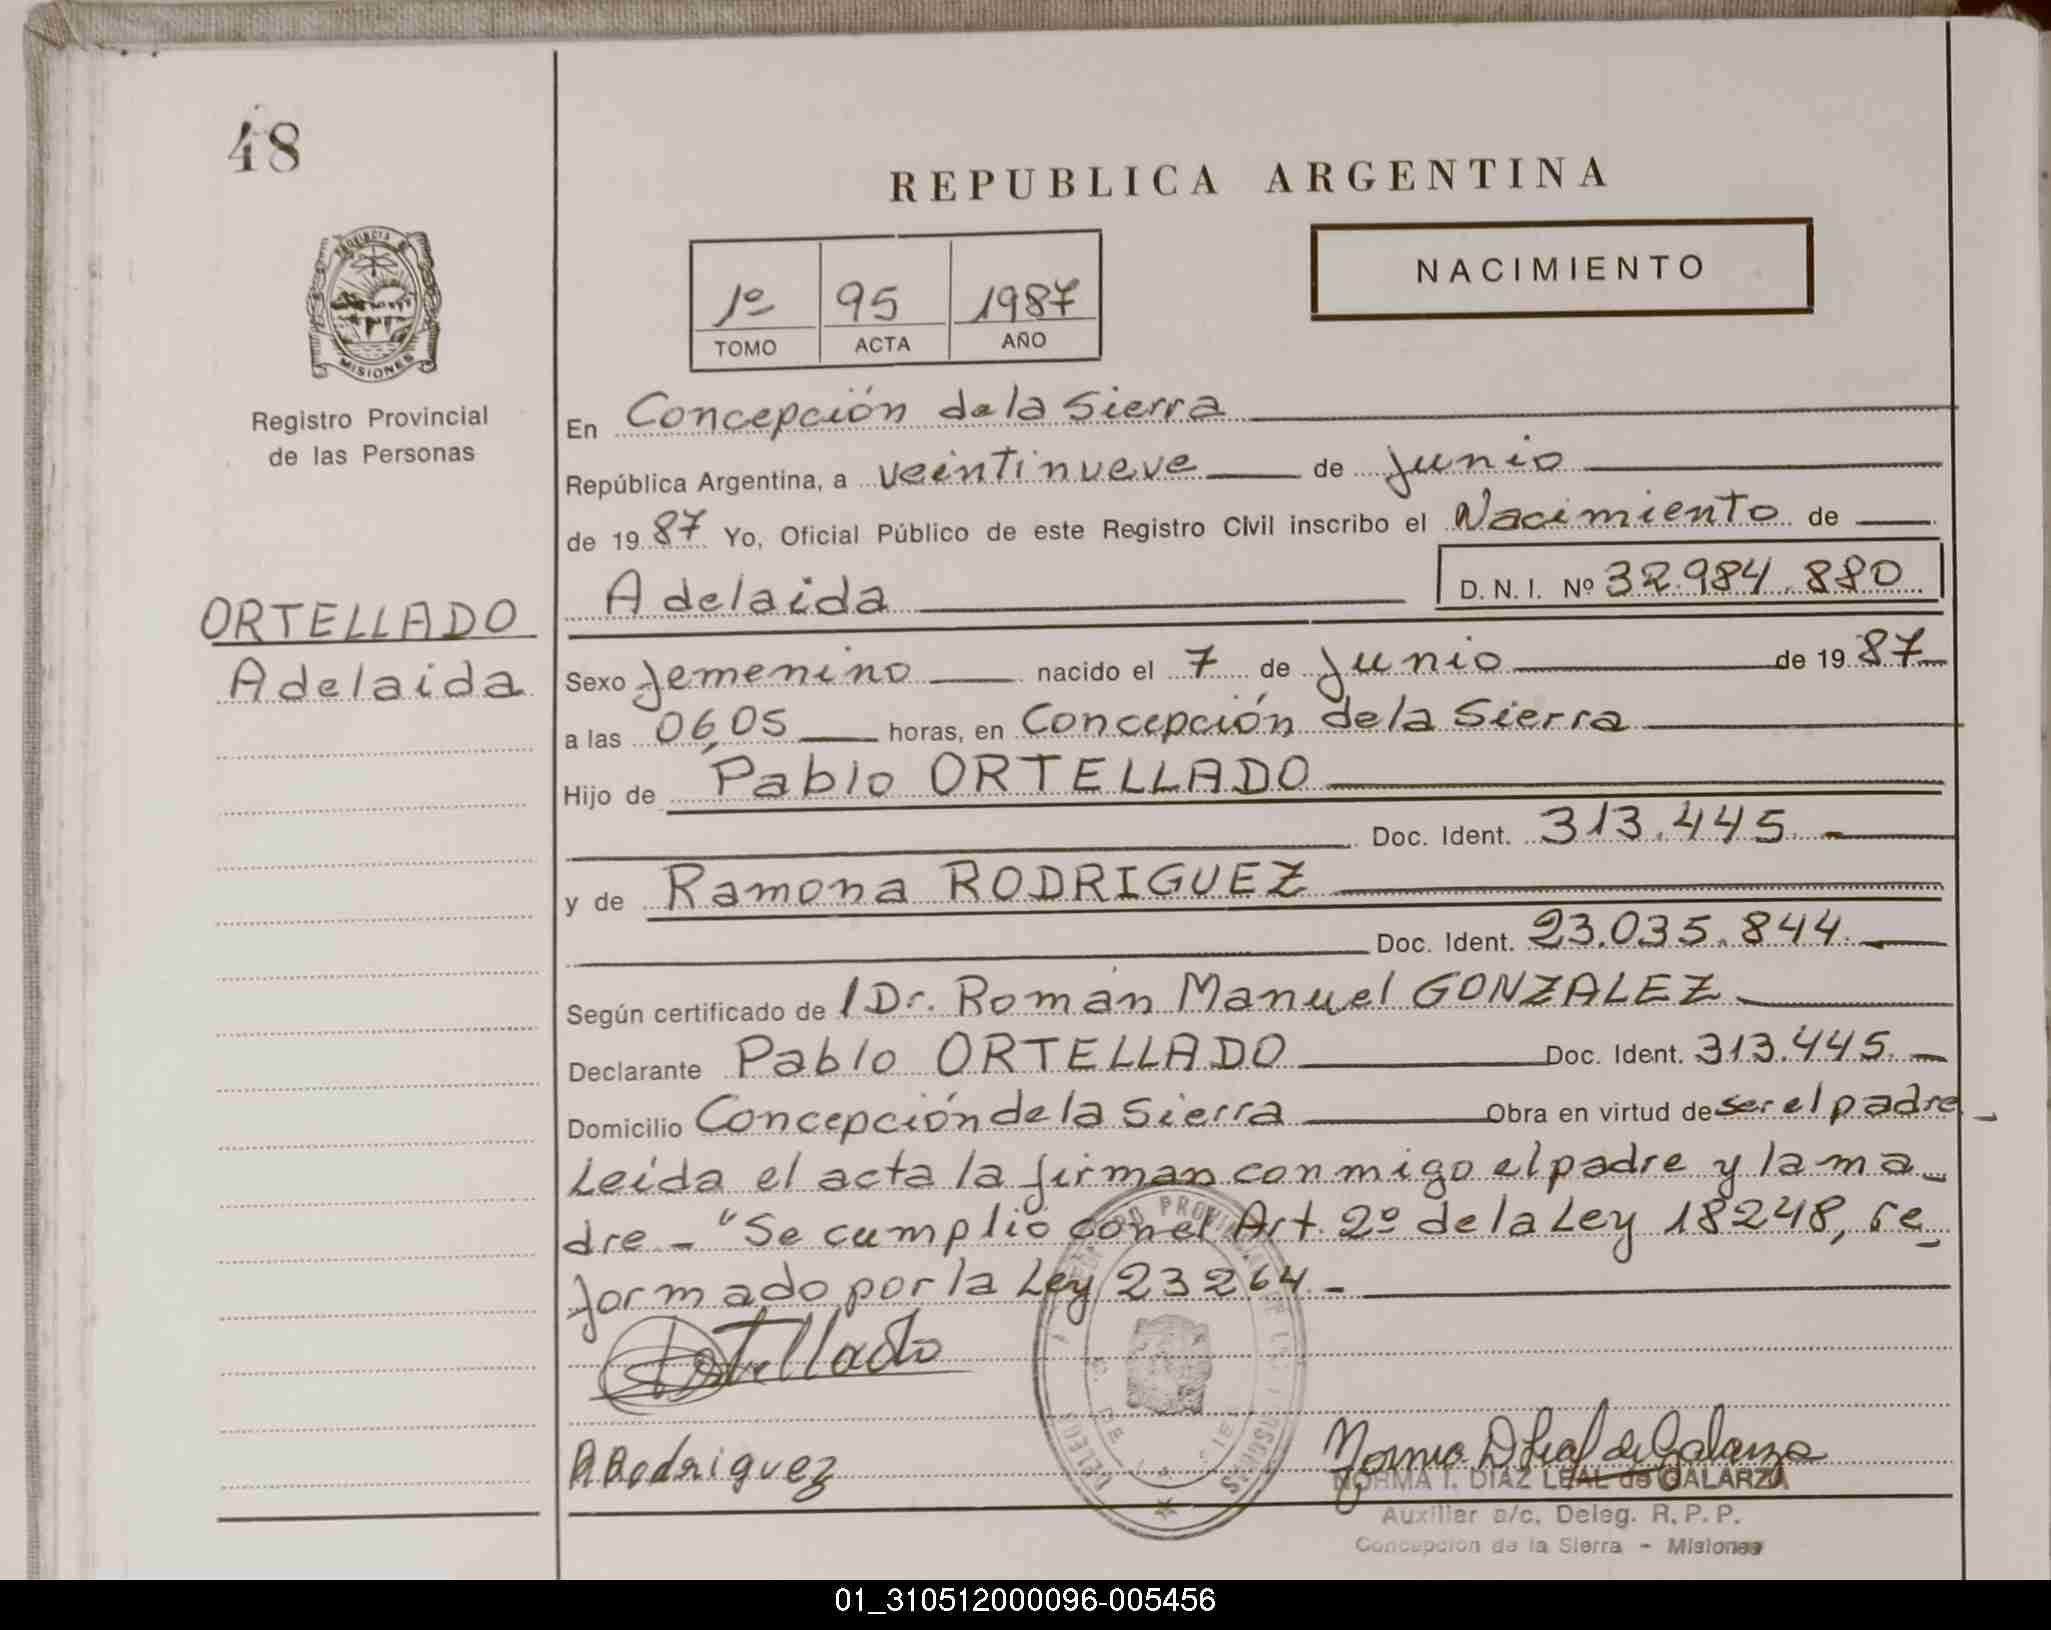 48
REPUBLICA ARGENTINA
NACIMIENTO
1º 95 1987
TOMO ACTA AÑO
PROVINCIA DE
MISIONES
Registro Provincial
de las Personas
ORTELLADO
Adelaida
En Concepción de la Sierra
República Argentina, a veintinueve de Junio
de 19 87 Yo, Oficial Público de este Registro Civil inscribo el Nacimiento de
Adelaida D. N. I. Nº 32.984.880
Sexo femenino nacido el 7 de Junio de 19 87
a las 06,05 horas, en Concepción de la Sierra
Hijo de Pablo ORTELLADO
Doc. Ident. 313.445.-
y de Ramona RODRIGUEZ
Doc. Ident. 23.035.844.
Según certificado de /Dr. Román Manuel GONZALEZ
Declarante Pablo ORTELLADO Doc. Ident. 313.445.-
Domicilio Concepción de la Sierra Obra en virtud de ser el padre -
Leída el acta la firman conmigo el padre y la ma-
dre - "Se cumplio con el Art. 2º de la Ley 18248, re-
formado por la Ley 23264.-
Ortellado
R Rodriguez
Norma D Leal de Galarza
NORMA I. DIAZ LEAL de GALARZA
Auxiliar a/c. Deleg. R. P. P.
Concepcion de la Sierra - Misiones
01_310512000096-005456